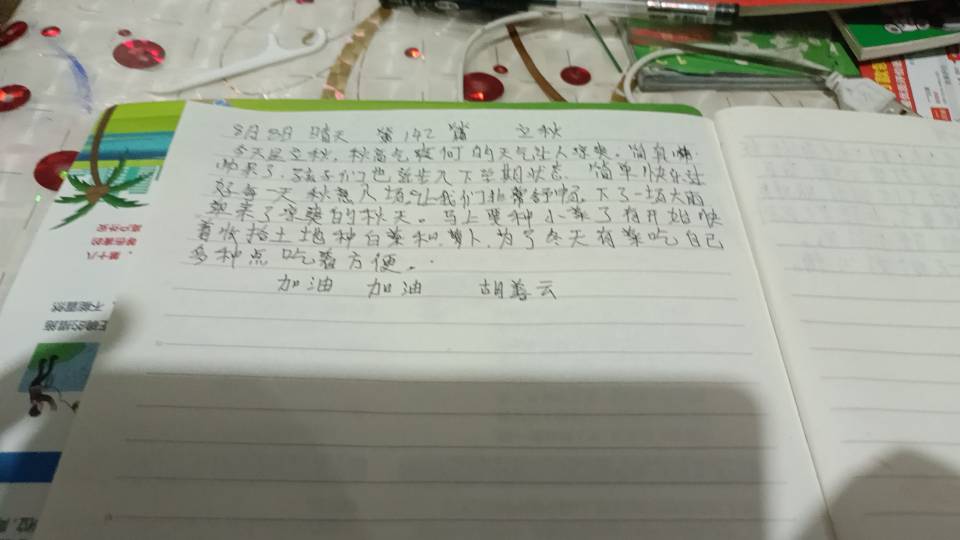 8月8日 晴天 第142篇 立秋
今天是立秋，秋高气爽的天气让人凉爽。
来了，孩子们也步入下学期状态。简单快乐过
好每一天 秋 人 让我们非常舒畅。下了一场大雨
来了凉爽的秋天。马上要种小菜了有开始快
着收拾土地种白菜和萝卜，为了冬天有菜吃自己
多种点吃着方便。
加油 加油 胡善云
第十八
不能露然
的措施